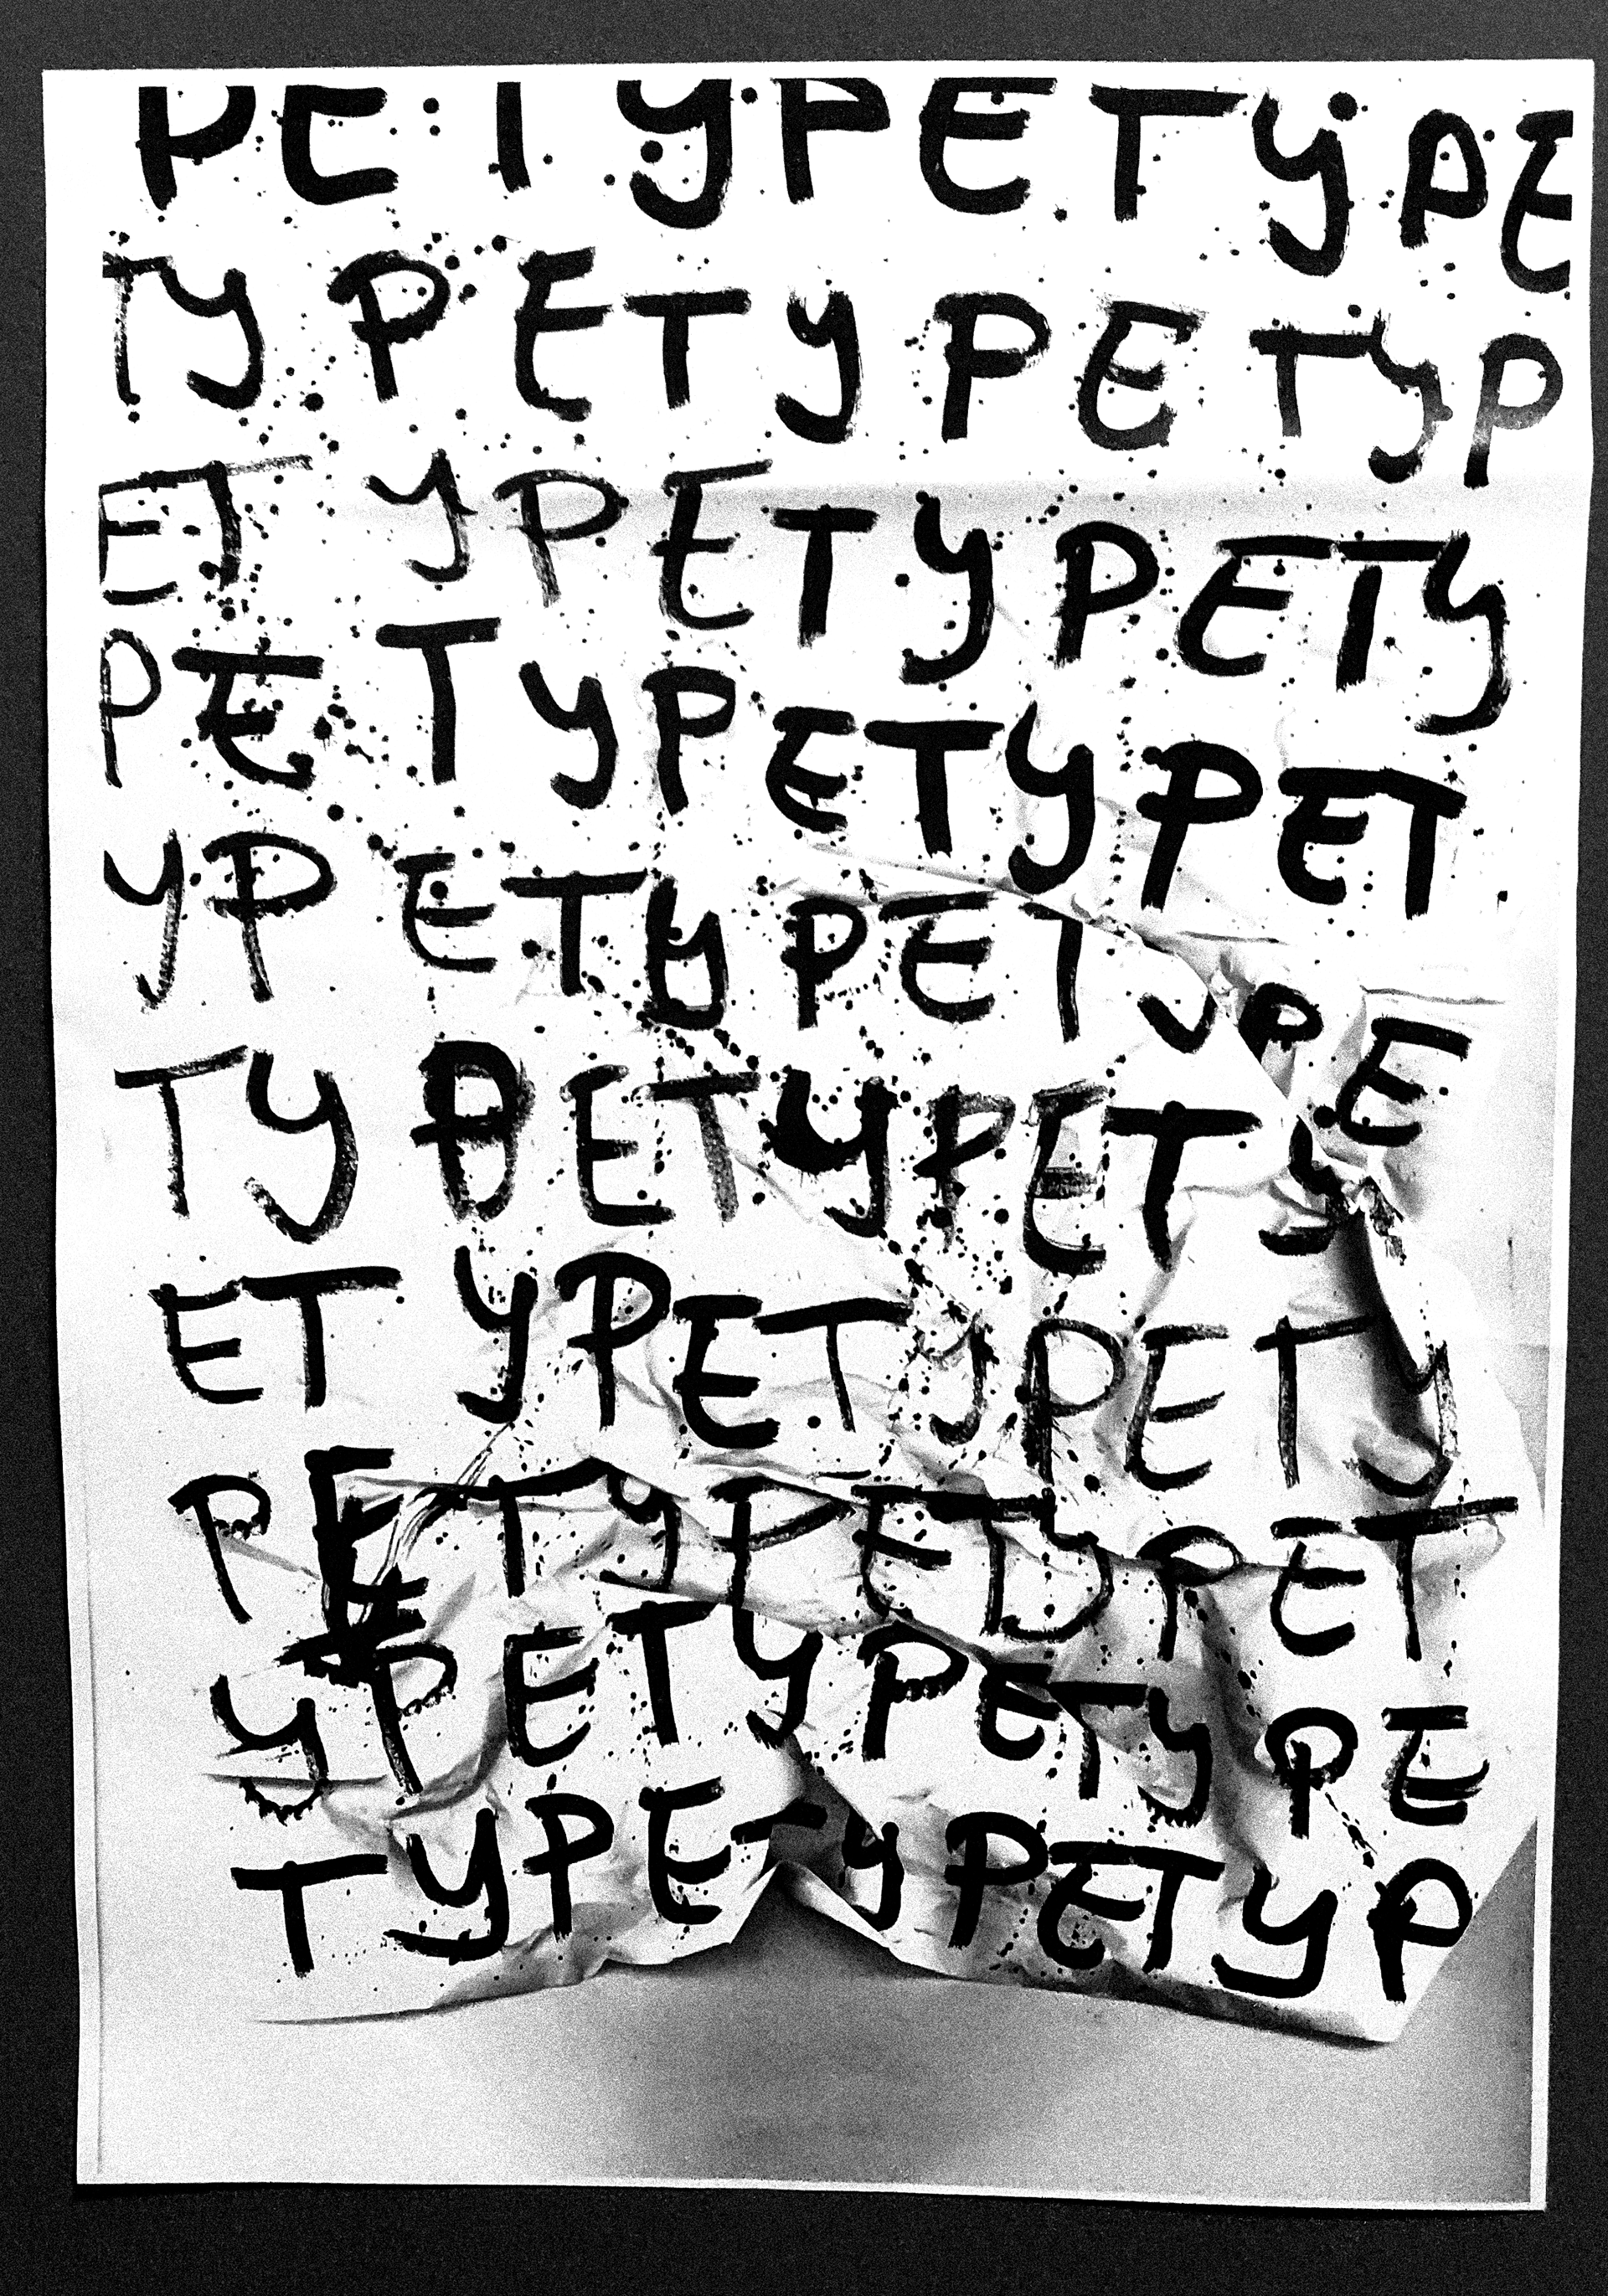 PETYPETYPE
TYPETYPETYP
ETYPETYPETY
PETYPETYPET
YPETYPETYPE
TYPETYPETY
ETYPETYPETY
PETYPETYPET
YPETYPETYPE
TYPETYPETYP